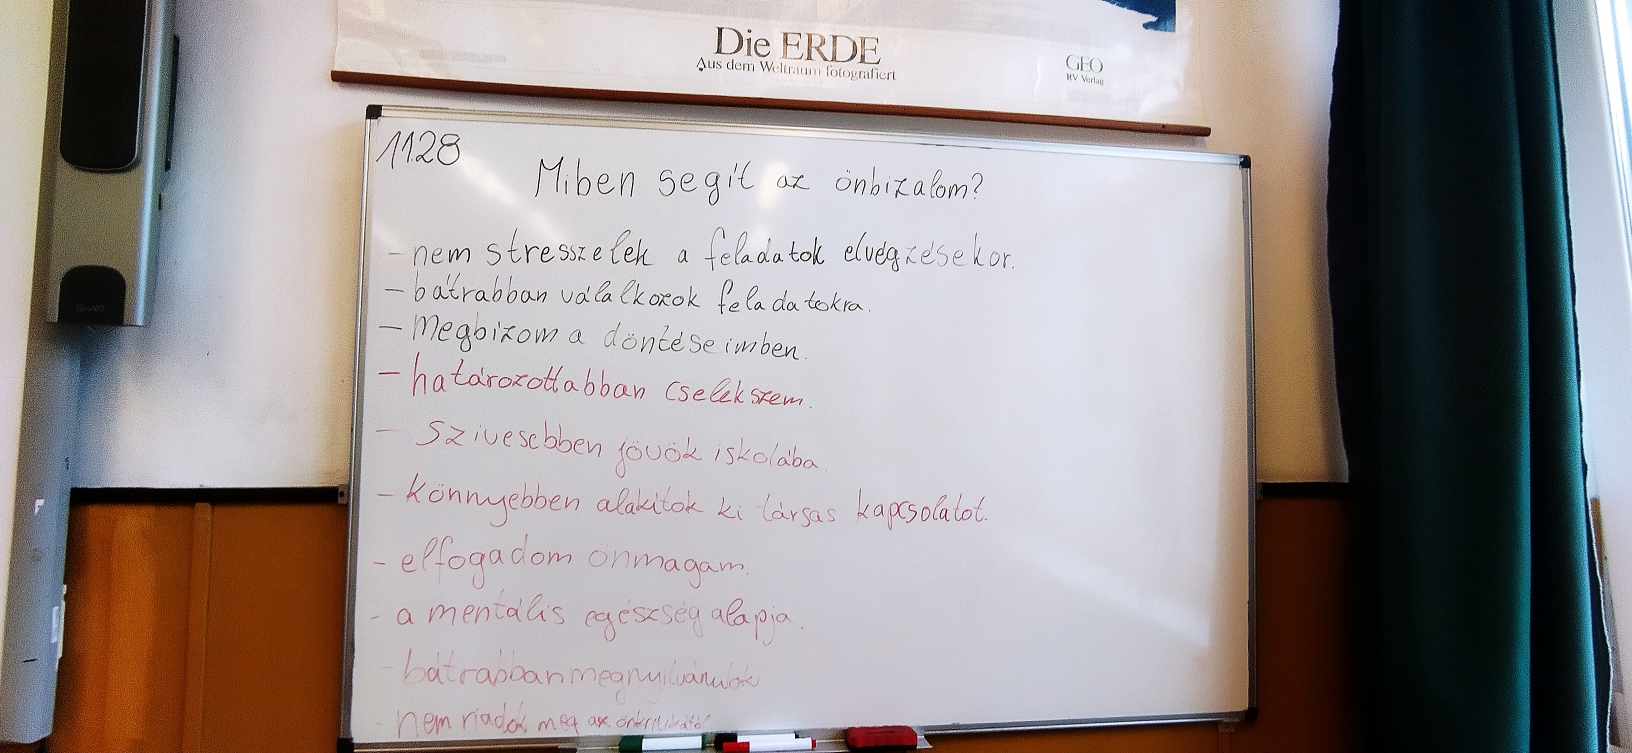 Die ERDE
Aus dem Weltraum fotografiert
GEO
RV Verlag
1128
Miben segít az önbizalom?
- nem stresszelek a feladatok elvégzésekor.
- bátrabban válalkozok feladatokra.
- Megbízom a döntéseimben.
- határozottabban cselekszem.
- Szivesebben jövök iskolába.
- könnyebben alakítok ki társas kapcsolatot.
- elfogadom önmagam.
- a mentális egészség alapja.
- bátrabban megnyilvánulok
- nem riadok meg az önkritikától